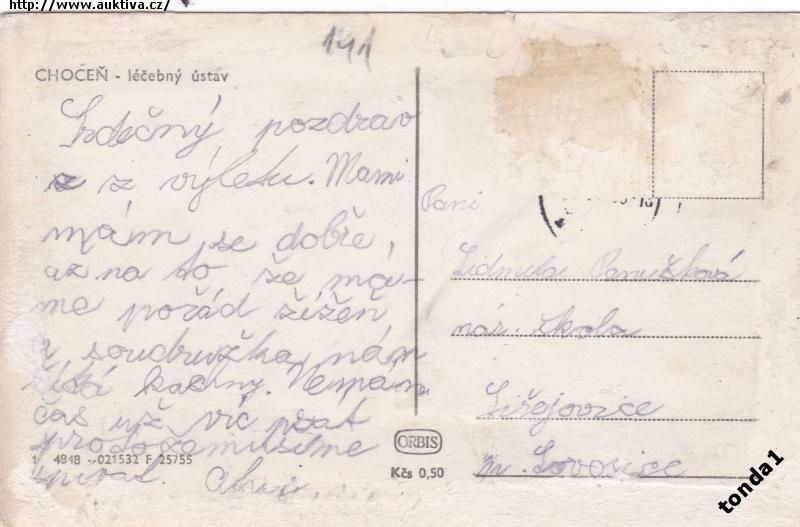 http://www.auktiva.cz/
141
CHOCEŇ - léčebný ústav
Srdečný pozdrav
z výletu. Mami
mám se dobře,
až na to že má-
me pořád žížeň
a soudružka nám
říká kaciny. Nemám
čas už víc psát
protože musíme
spívat. Ahoj.
4848 021532 F 25755
ORBIS
Kčs 0,50
Paní
Lidmila Panušková
nás. škola
Siřejovice
Lovosice
tonda1